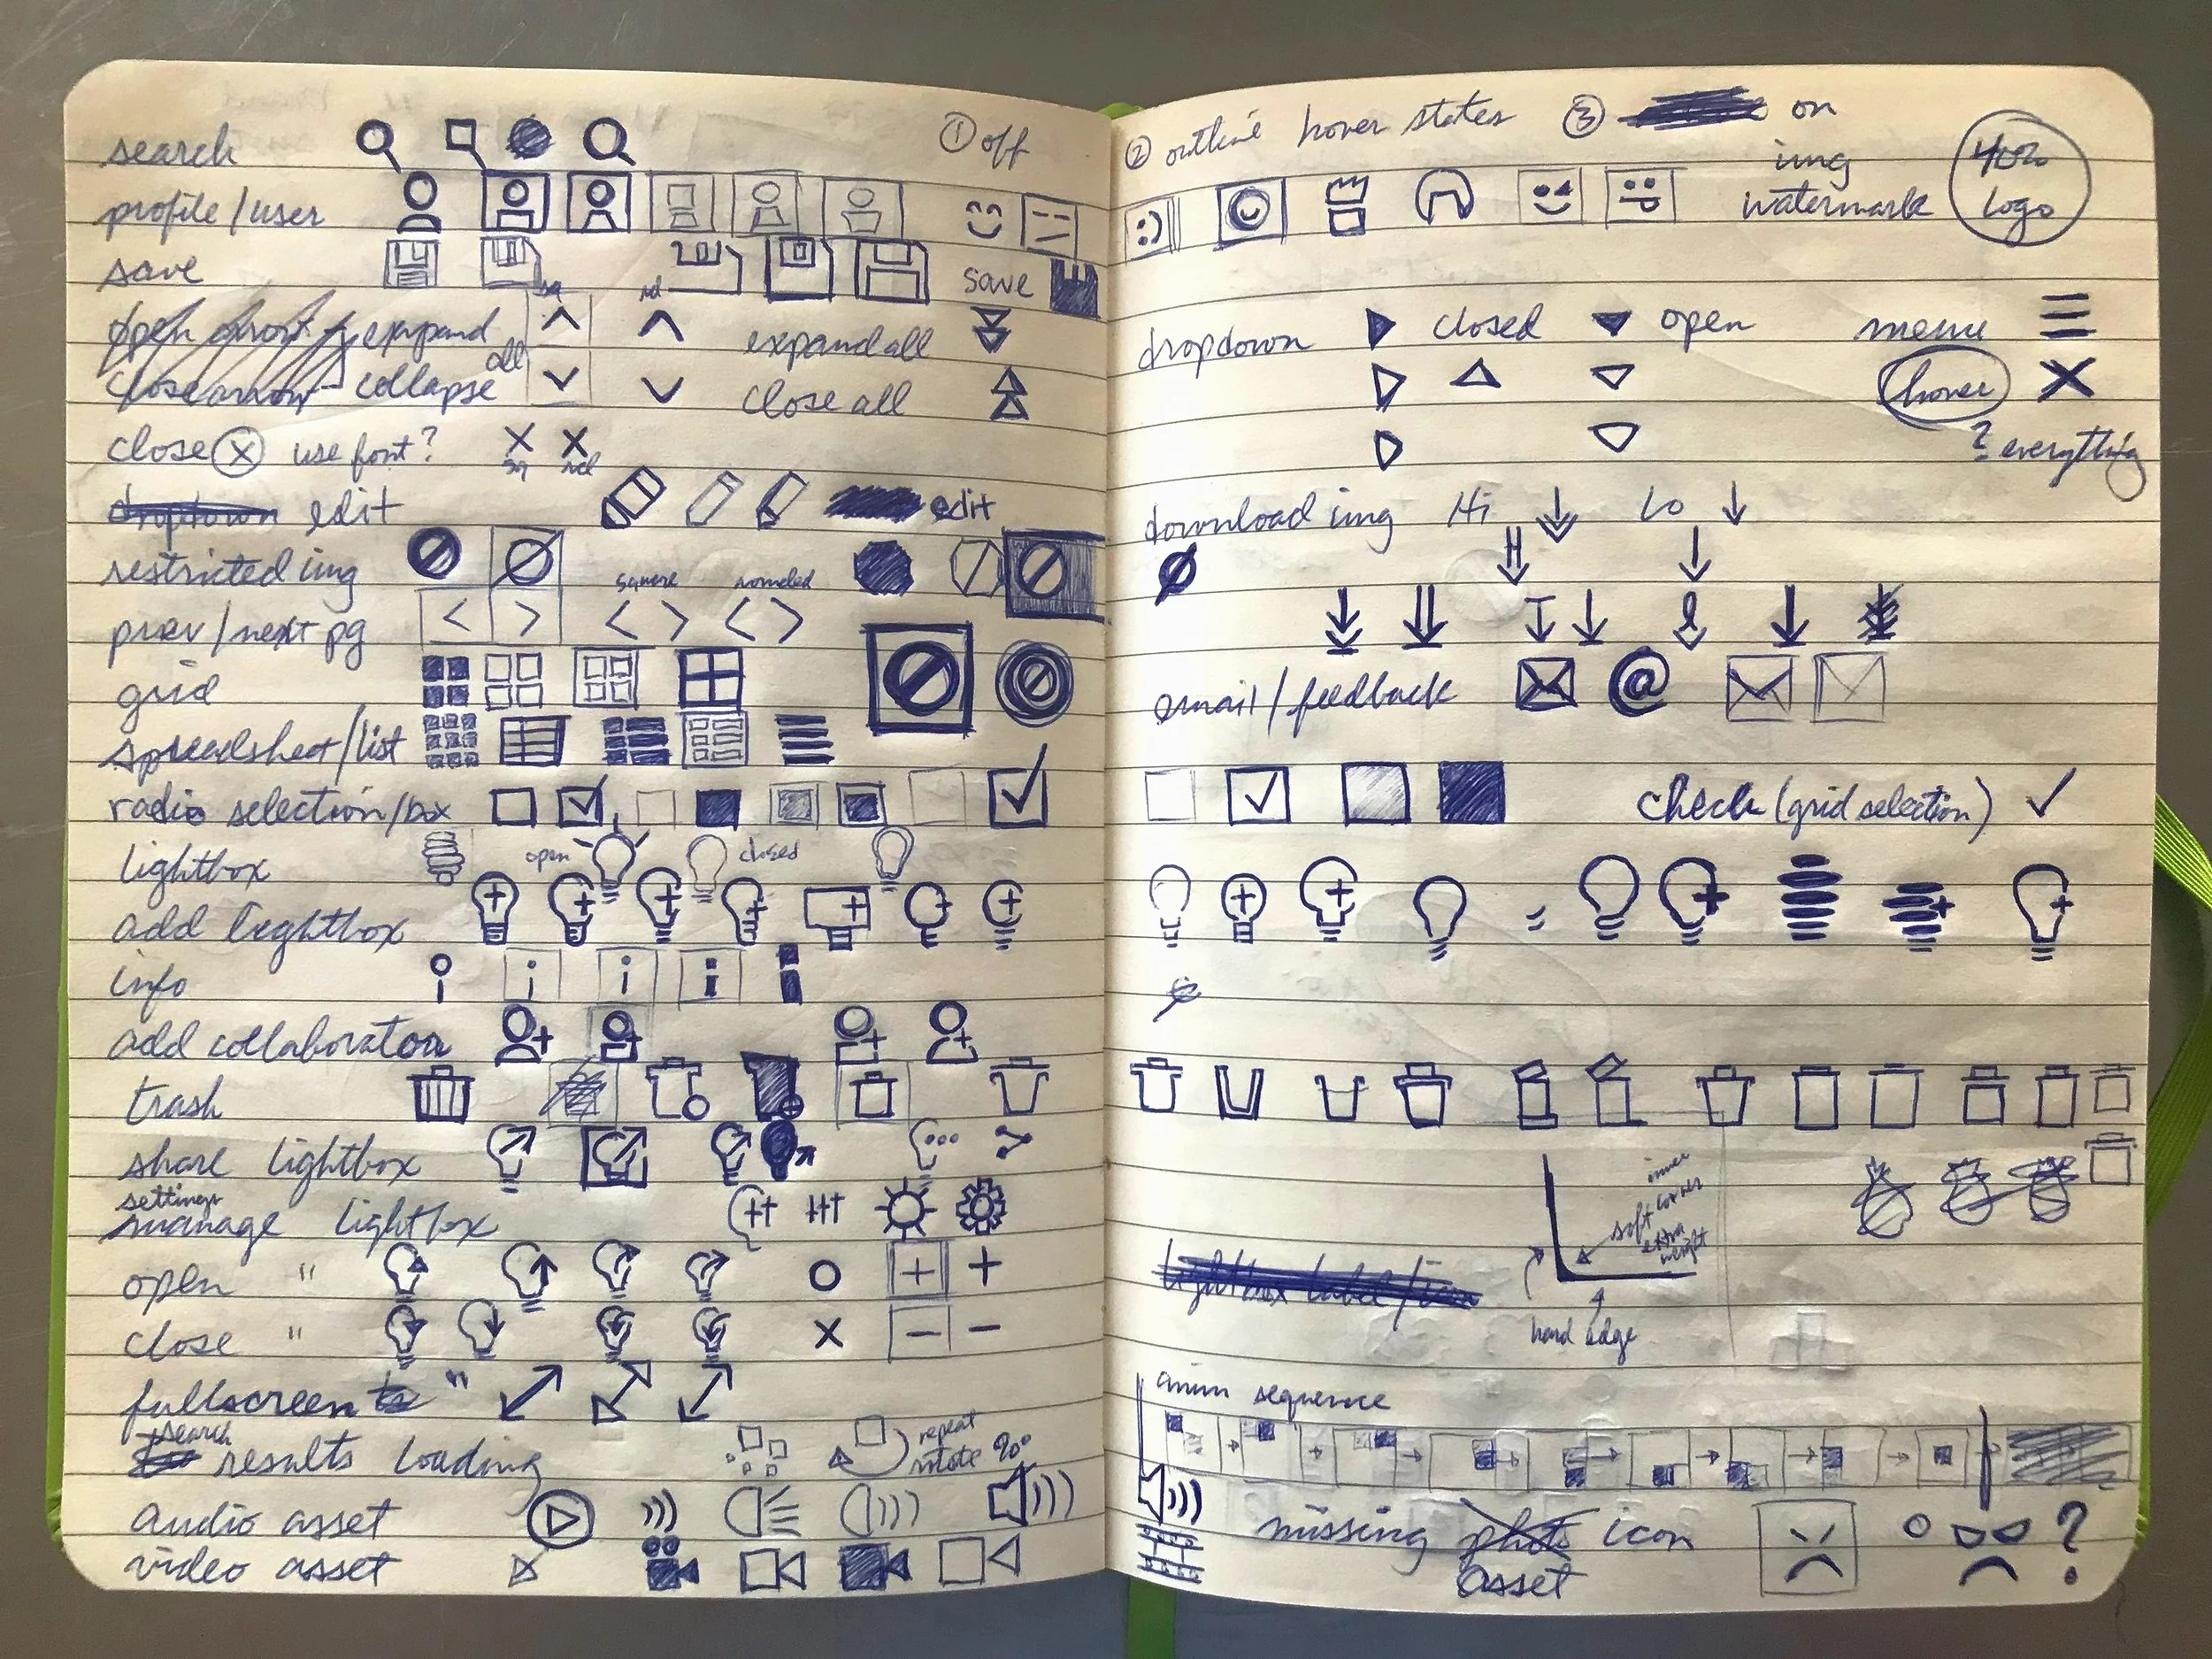 search ① off
profile/user
save sq rd save
open arrow / expand all expand all
close arrow collapse close all
close ⓧ use font? sq rd
dropdown edit edit
restricted img square rounded
prev/next pg < > < > < >
grid
spreadsheet/list
radio selection/box
lightbox open closed
add lightbox
info i i i i
add collaborator
trash
share lightbox
settings
manage lightbox
open " + +
close " x − −
fullscreen "
search
results loading repeat rotate 90°
Audio asset
video asset
② outline hover states ③ on
img
watermark
40%
logo
dropdown closed open menu
hover
? everything
download img Hi Lo
email/feedback @
check (grid selection) ✓
inner
soft corner
extra
weight
lightbox label/icon
hard edge
anim sequence
missing photo icon ?
asset